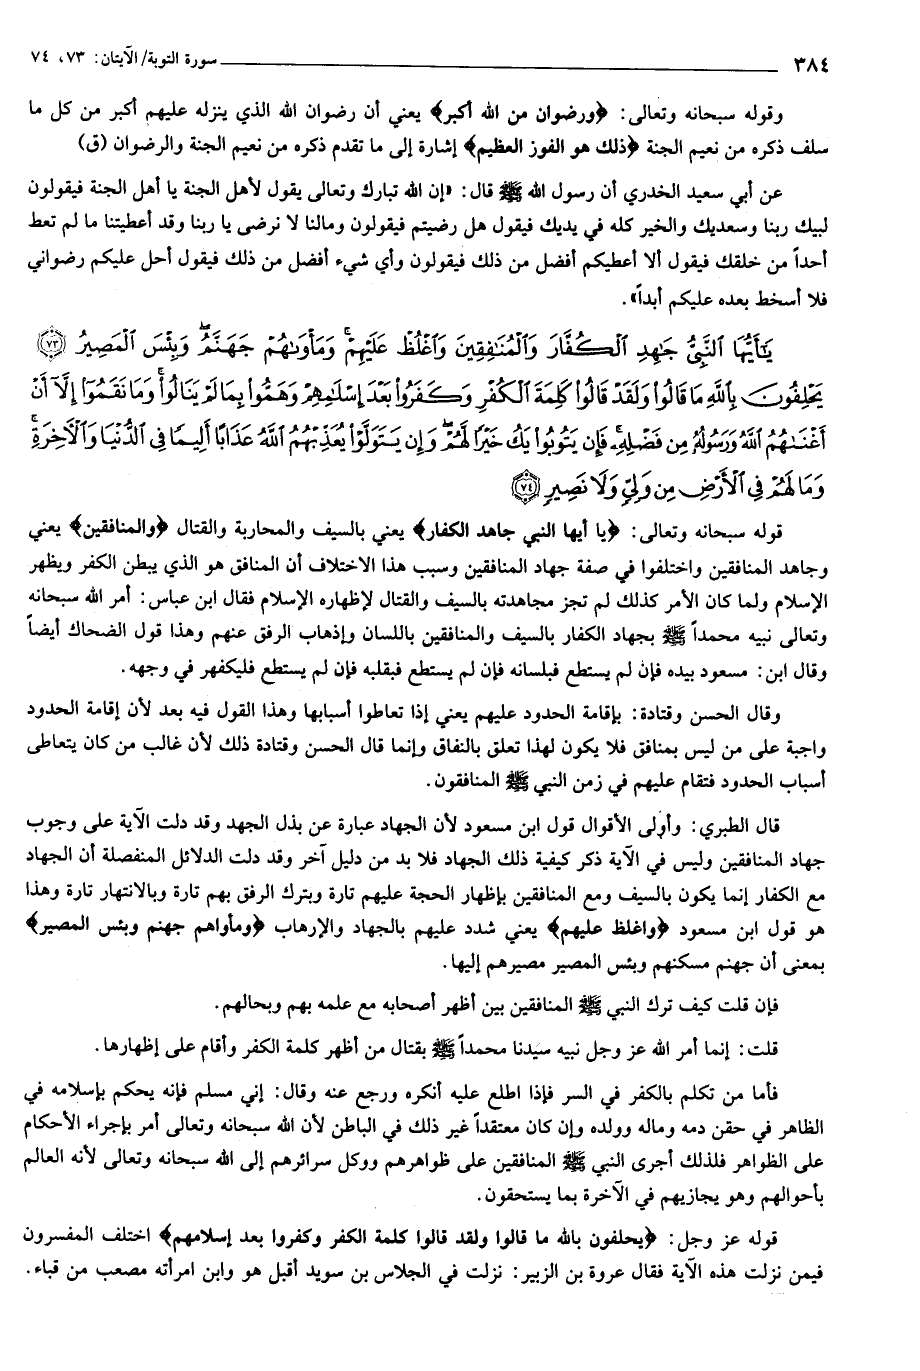 ٣٨٤ سورة التوبة/ الآيتان: ٧٣، ٧٤
وقوله سبحانه وتعالى: ﴿ورضوان من الله أكبر﴾ يعني أن رضوان الله الذي ينزله عليهم أكبر من كل ما
سلف ذكره من نعيم الجنة ﴿ذلك هو الفوز العظيم﴾ إشارة إلى ما تقدم ذكره من نعيم الجنة والرضوان (ق)
عن أبي سعيد الخدري أن رسول الله ﷺ قال: «إن الله تبارك وتعالى يقول لأهل الجنة يا أهل الجنة فيقولون
لبيك ربنا وسعديك والخير كله في يديك فيقول هل رضيتم فيقولون ومالنا لا نرضى يا ربنا وقد أعطيتنا ما لم تعط
أحداً من خلقك فيقول ألا أعطيكم أفضل من ذلك فيقولون وأي شيء أفضل من ذلك فيقول أحل عليكم رضواني
فلا أسخط بعده عليكم أبداً».
يَٰٓأَيُّهَا ٱلنَّبِىُّ جَٰهِدِ ٱلْكُفَّارَ وَٱلْمُنَٰفِقِينَ وَٱغْلُظْ عَلَيْهِمْ ۚ وَمَأْوَىٰهُمْ جَهَنَّمُ ۖ وَبِئْسَ ٱلْمَصِيرُ ﴿٧٣﴾
يَحْلِفُونَ بِٱللَّهِ مَا قَالُوا۟ وَلَقَدْ قَالُوا۟ كَلِمَةَ ٱلْكُفْرِ وَكَفَرُوا۟ بَعْدَ إِسْلَٰمِهِمْ وَهَمُّوا۟ بِمَا لَمْ يَنَالُوا۟ ۚ وَمَا نَقَمُوٓا۟ إِلَّآ أَنْ
أَغْنَىٰهُمُ ٱللَّهُ وَرَسُولُهُۥ مِن فَضْلِهِۦ ۚ فَإِن يَتُوبُوا۟ يَكُ خَيْرًا لَّهُمْ ۖ وَإِن يَتَوَلَّوْا۟ يُعَذِّبْهُمُ ٱللَّهُ عَذَابًا أَلِيمًا فِى ٱلدُّنْيَا وَٱلْأَخِرَةِ ۚ
وَمَا لَهُمْ فِى ٱلْأَرْضِ مِن وَلِىٍّ وَلَا نَصِيرٍ ﴿٧٤﴾
قوله سبحانه وتعالى: ﴿يا أيها النبي جاهد الكفار﴾ يعني بالسيف والمحاربة والقتال ﴿والمنافقين﴾ يعني
وجاهد المنافقين واختلفوا في صفة جهاد المنافقين وسبب هذا الاختلاف أن المنافق هو الذي يبطن الكفر ويظهر
الإسلام ولما كان الأمر كذلك لم تجز مجاهدته بالسيف والقتال لإظهاره الإسلام فقال ابن عباس: أمر الله سبحانه
وتعالى نبيه محمداً ﷺ بجهاد الكفار بالسيف والمنافقين باللسان وإذهاب الرفق عنهم وهذا قول الضحاك أيضاً
وقال ابن: مسعود بيده فإن لم يستطع فبلسانه فإن لم يستطع فبقلبه فإن لم يستطع فليكفهر في وجهه.
وقال الحسن وقتادة: بإقامة الحدود عليهم يعني إذا تعاطوا أسبابها وهذا القول فيه بعد لأن إقامة الحدود
واجبة على من ليس بمنافق فلا يكون لهذا تعلق بالنفاق وإنما قال الحسن وقتادة ذلك لأن غالب من كان يتعاطى
أسباب الحدود فتقام عليهم في زمن النبي ﷺ المنافقون.
قال الطبري: وأولى الأقوال قول ابن مسعود لأن الجهاد عبارة عن بذل الجهد وقد دلت الآية على وجوب
جهاد المنافقين وليس في الآية ذكر كيفية ذلك الجهاد فلا بد من دليل آخر وقد دلت الدلائل المنفصلة أن الجهاد
مع الكفار إنما يكون بالسيف ومع المنافقين بإظهار الحجة عليهم تارة وبترك الرفق بهم تارة وبالانتهار تارة وهذا
هو قول ابن مسعود ﴿واغلظ عليهم﴾ يعني شدد عليهم بالجهاد والإرهاب ﴿ومأواهم جهنم وبئس المصير﴾
بمعنى أن جهنم مسكنهم وبئس المصير مصيرهم إليها.
فإن قلت كيف ترك النبي ﷺ المنافقين بين أظهر أصحابه مع علمه بهم وبحالهم.
قلت: إنما أمر الله عز وجل نبيه سيدنا محمداً ﷺ بقتال من أظهر كلمة الكفر وأقام على إظهارها.
فأما من تكلم بالكفر في السر فإذا اطلع عليه أنكره ورجع عنه وقال: إني مسلم فإنه يحكم بإسلامه في
الظاهر في حقن دمه وماله وولده وإن كان معتقداً غير ذلك في الباطن لأن الله سبحانه وتعالى أمر بإجراء الأحكام
على الظواهر فلذلك أجرى النبي ﷺ المنافقين على ظواهرهم ووكل سرائرهم إلى الله سبحانه وتعالى لأنه العالم
بأحوالهم وهو يجازيهم في الآخرة بما يستحقون.
قوله عز وجل: ﴿يحلفون بالله ما قالوا ولقد قالوا كلمة الكفر وكفروا بعد إسلامهم﴾ اختلف المفسرون
فيمن نزلت هذه الآية فقال عروة بن الزبير: نزلت في الجلاس بن سويد أقبل هو وابن امرأته مصعب من قباء.